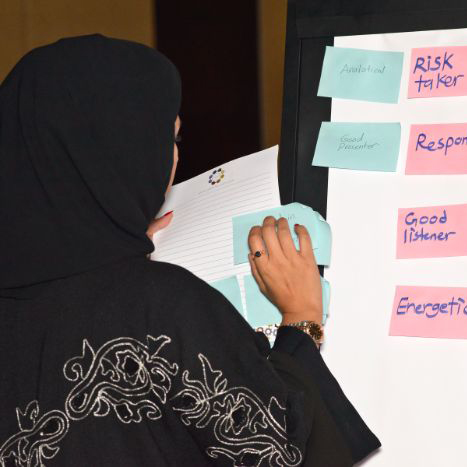 Analatical
Risk
taker
Good
Presenter
Respon
Good
listener
Energetic